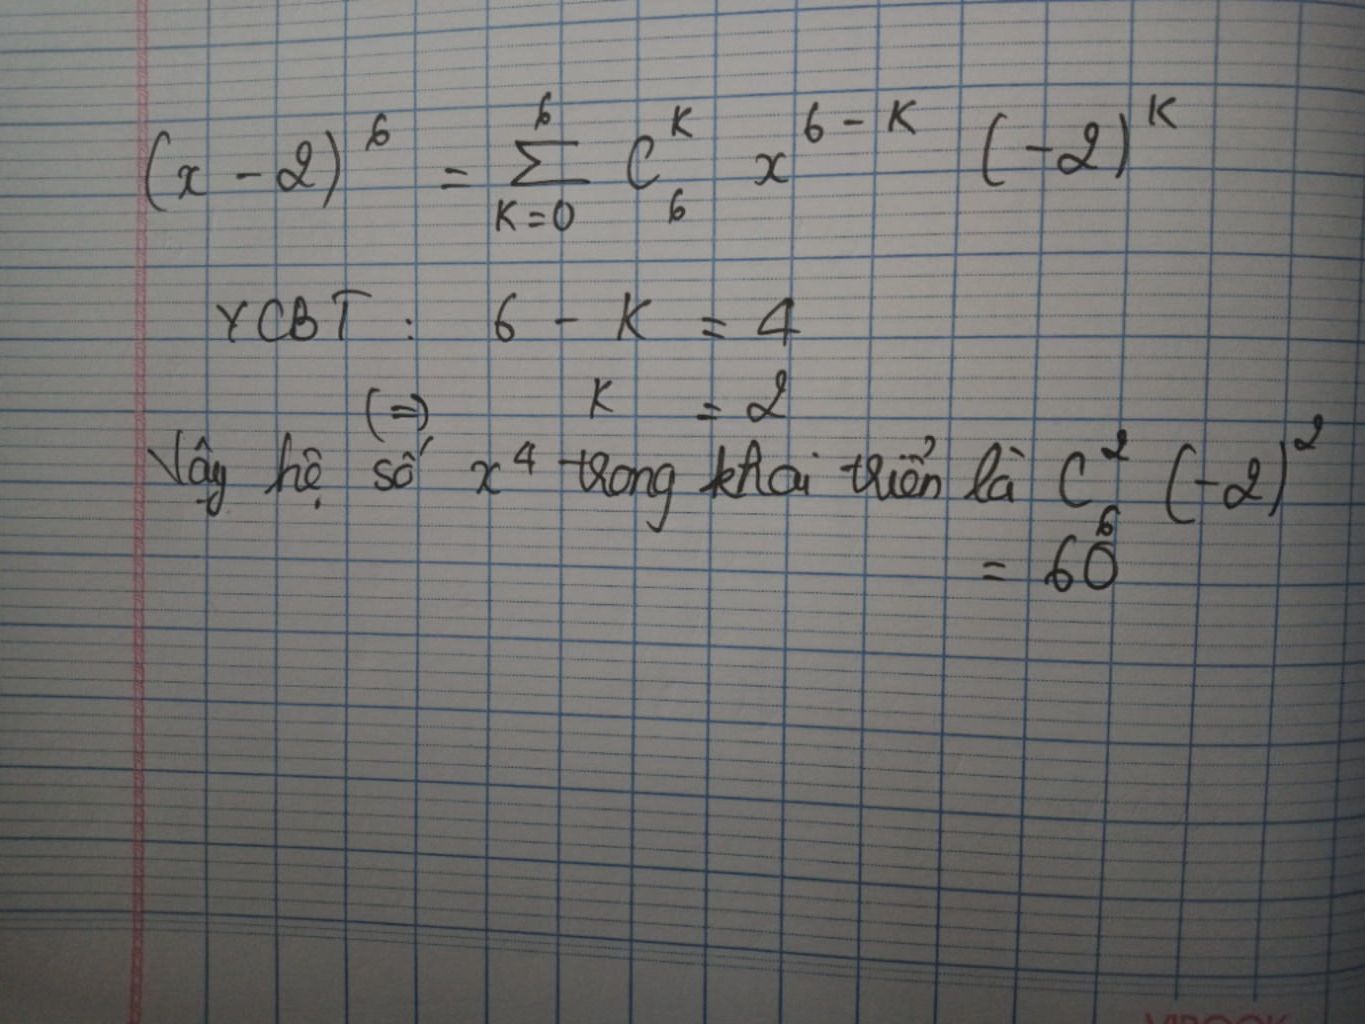 (x - 2)^6 = \sum_{K=0}^{6} C_6^K x^{6-K} (-2)^K
YCBT : 6 - K = 4
(=) K = 2
Vậy hệ số x^4 trong khai triển là C_6^2 (-2)^2
= 60